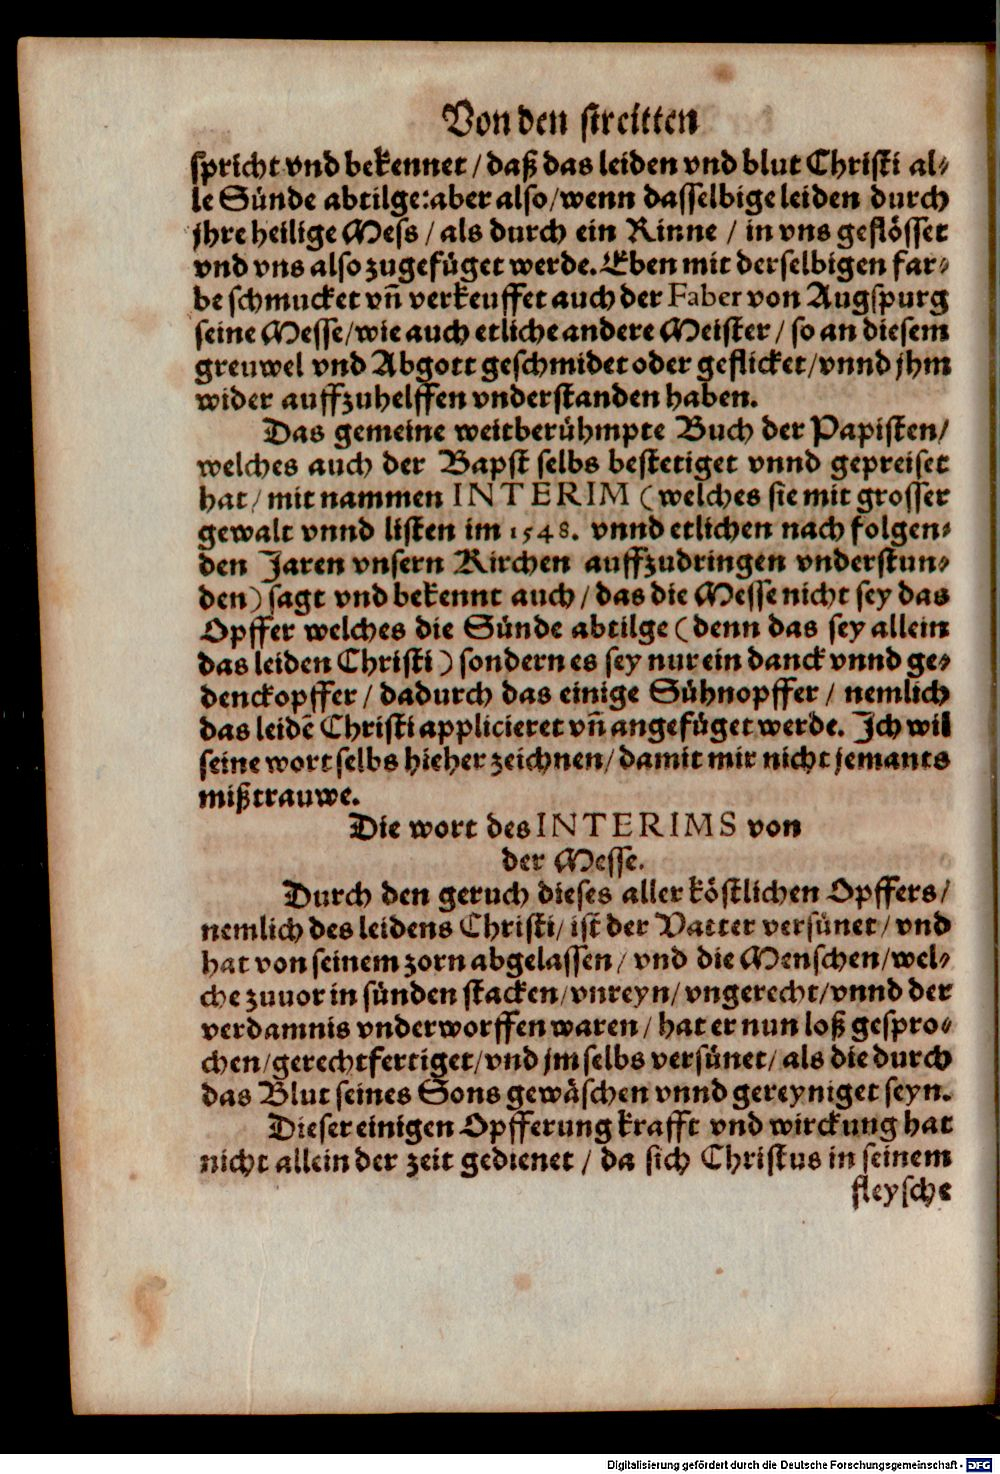 Von den streitten
spricht vnd bekennet / daß das leiden vnd blut Christi al⸗
le Sünde abtilge: aber also / wenn dasselbige leiden durch
jhre heilige Mess / als durch ein Rinne / in vns geflösset
vnd vns also zugefüget werde. Eben mit derselbigen far⸗
be schmucket vñ verkeuffet auch der Faber von Augspurg
seine Messe / wie auch etliche andere Meister / so an diesem
greuwel vnd Abgott geschmidet oder geflicket / vnnd jhm
wider auffzuhelffen vnderstanden haben.
Das gemeine weitberühmpte Buch der Papisten /
welches auch der Bapst selbs bestetiget vnnd gepreiset
hat / mit nammen INTERIM (welches sie mit grosser
gewalt vnnd listen im 1548. vnnd etlichen nach folgen⸗
den Jaren vnsern Kirchen auffzudringen vnderstun⸗
den) sagt vnd bekennt auch / das die Messe nicht sey das
Opffer welches die Sünde abtilge (denn das sey allein
das leiden Christi) sondern es sey nur ein danck vnnd ge⸗
denckopffer / dadurch das einige Sühnopffer / nemlich
das leidē Christi applicieret vñ angefüget werde. Ich wil
seine wort selbs hieher zeichnen / damit mir nicht jemants
mißtrauwe.
Die wort des INTERIMS von
der Messe.
Durch den geruch dieses aller köstlichen Opffers /
nemlich des leidens Christi / ist der Vatter versünet / vnd
hat von seinem zorn abgelassen / vnd die Menschen / wel⸗
che zuuor in sünden stacken / vnreyn / vngerecht / vnnd der
verdamnis vnderworffen waren / hat er nun loß gespro⸗
chen / gerechtfertiget / vnd jm selbs versünet / als die durch
das Blut seines Sons gewäschen vnnd gereyniget seyn.
Dieser einigen Opfferung krafft vnd wirckung hat
nicht allein der zeit gedienet / da sich Christus in seinem
fleysche
Digitalisierung gefördert durch die Deutsche Forschungsgemeinschaft - DFG